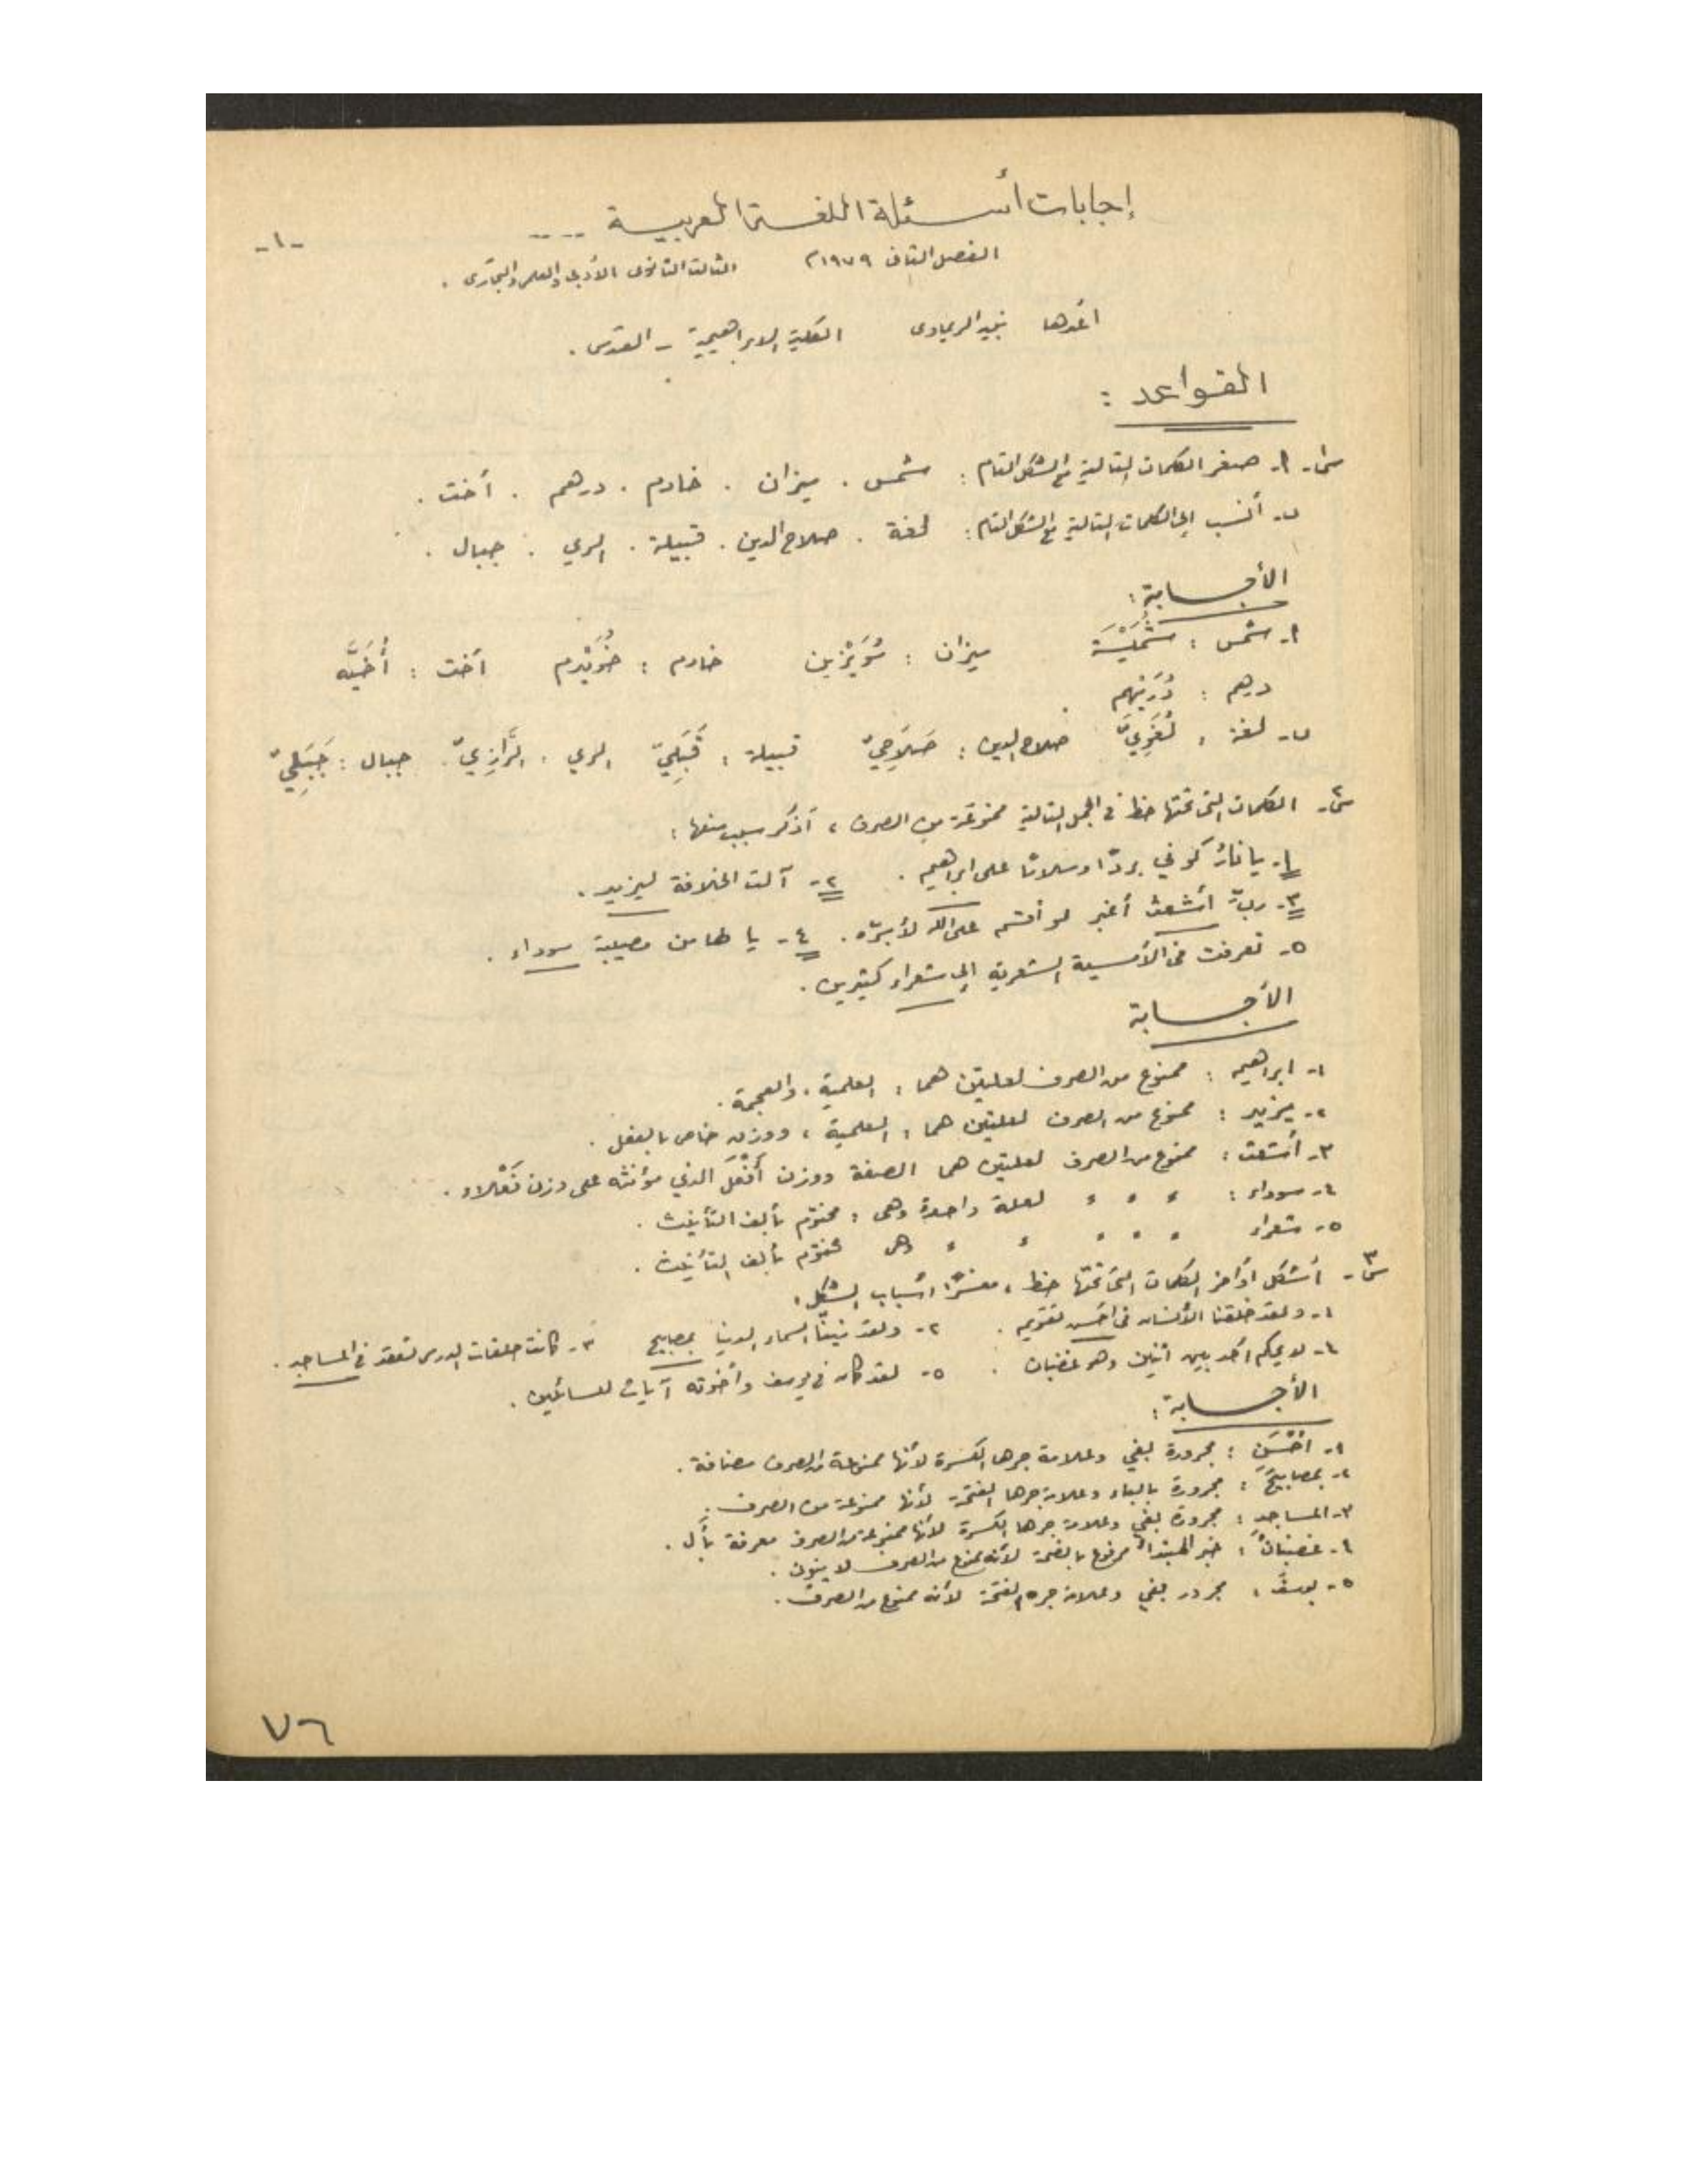 إجابات أسئلة اللغة العربية ....
-١-
الفصل الثاني ١٩٧٩م الثالث الثانوي الأدبي والعلمي والتجاري .
أعدها نجيد الريماوي الكلية الابراهيمية - القدس .
القواعد :
س١- ٩- صغر الكلمات التالية مع الشكل التام : شمس . ميزان . خادم . درهم . أخت .
ب- أنسب إلى الكلمات التالية مع الشكل التام : لغة . صلاح الدين . قبيلة . الري . جبال .
الأجابة :
٩- شمس : شُمَيْسَة ميزان : مُوَيْزين خادم : خُوَيْدم أخت : أُخَيَّه
درهم : دُرَيْهم
ب- لغة : لُغَوِيّ صلاح الدين : صَلَاحِيّ قبيلة : قَبَلِيّ الري : الرَّازِيّ . جبال : جَبَلِيّ
س٢- الكلمات التي تحتها خط في الجمل التالية ممنوعة من الصرف ، أذكر سبب منعها :
١- يا نارُ كوني برداً وسلاماً على ابراهيم . ٢- آلت الخلافة ليزيد .
٣- ربّ أشعث أغبر لو أقسم على الله لأبرّه . ٤- يا لها من مصيبة سوداء .
٥- تعرفت في الأمسية الشعرية إلى شعراء كثيرين .
الأجابة
١- ابراهيم : ممنوع من الصرف لعلتين هما : العلمية . والعجمة .
٢- يزيد : ممنوع من الصرف لعلتين هما : العلمية ، ووزن خاص بالفعل .
٣- أشعث : ممنوع من الصرف لعلتين هما الصفة ووزن أَفْعَل الذي مؤنثه على وزن فَعْلاء .
٤- سوداء : ء ء ء لعلة واحدة وهي : مختوم بألف التأنيث .
٥- شعراء ء ء ء ء ء وهي مختوم بألف التأنيث .
س٣- أشكل أواخر الكلمات التي تحتها خط ، مفسراً أسباب الشكل :
١- ولقد خلقنا الأنسان في احسن تقويم . ٢- ولقد زينّا السماء الدنيا بمصابيح ٣- كانت حلقات الدرس تعقد في المساجد .
٤- لا يحكم أحد بين أثنين وهو غضبان . ٥- لقد كان في يوسف وأخوته آيات للسائلين .
الأجابة :
١- أحْسَنِ : مجرورة بفي وعلامة جرها الكسرة لأنها ممنوعة من الصرف مضافة .
٢- بمصابيحَ : مجرورة بالباء وعلامة جرها الفتحة لأنها ممنوعة من الصرف .
٣- المساجدِ : مجرورة بفي وعلامة جرها الكسرة لأنها ممنوعة من الصرف معرفة بأل .
٤- غضبانُ : خبر المبتدأ مرفوع بالضمة لأنه ممنوع من الصرف لا ينون .
٥- يوسفَ : مجرور بفي وعلامة جره الفتحة لأنه ممنوع من الصرف .
٧٦